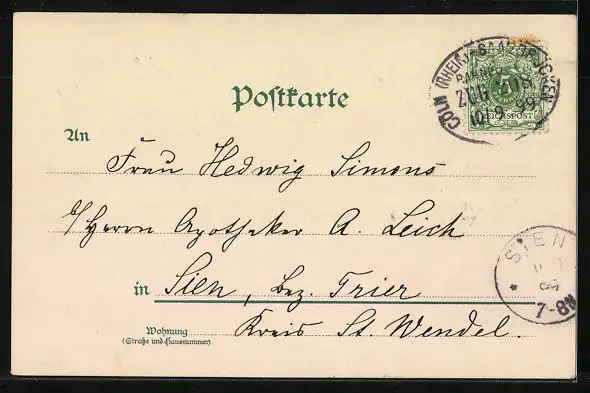 CÖLN (RHEIN)-SAARBRÜCKEN
BAHNP.
ZUG 308
10.9.99
REICHSPOST
Postkarte
An
Frau Hedwig Simons
b/ Herrn Apotheker A. Leich
SIEN
7-8N
in Sien, Bez. Trier
Kreis St. Wendel.
Wohnung
(Straße und Hausnummer)